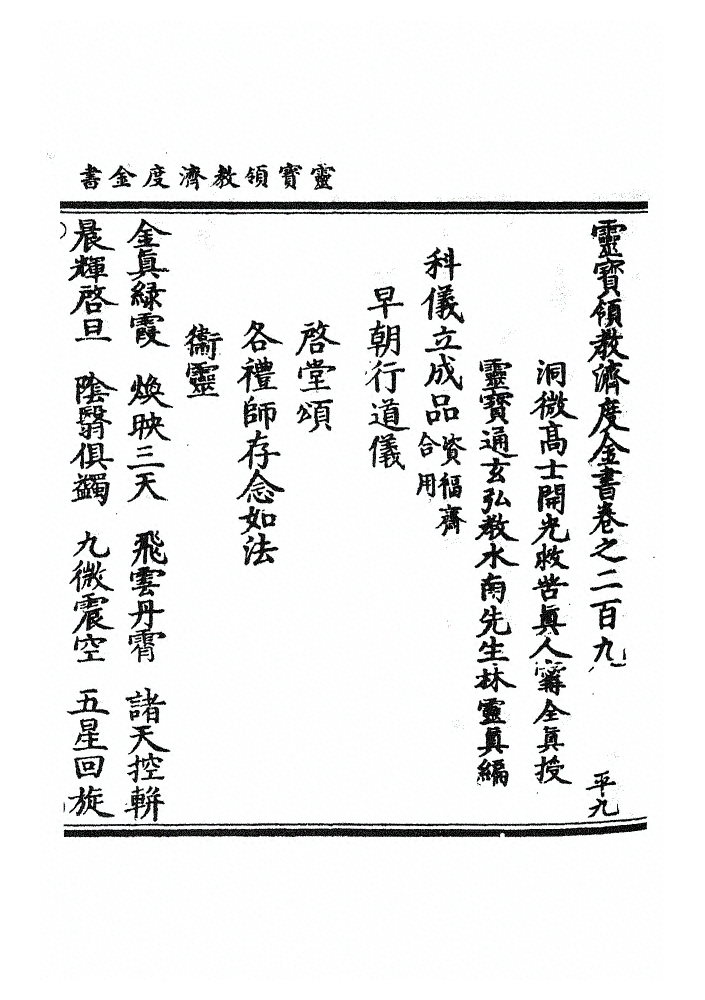 靈寶領教濟度金書
靈寶領教濟度金書卷之二百九 平九
洞微高士開光救苦眞人寗全眞授
靈寶通玄弘教水南先生林靈眞編
科儀立成品 資福齋合用
早朝行道儀
啓堂頌
各禮師存念如法
衞靈
金眞緑霞 煥映三天 飛雲丹霄 諸天控軿
晨輝啓旦 陰翳俱蠲 九微震空 五星回旋